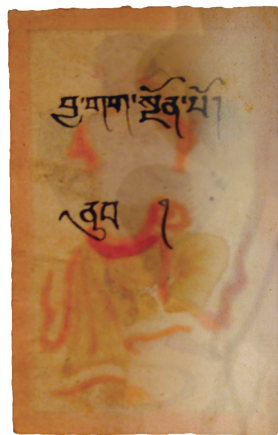 བྱ་གག་སྔོན་པོ།
ནུབ ༡